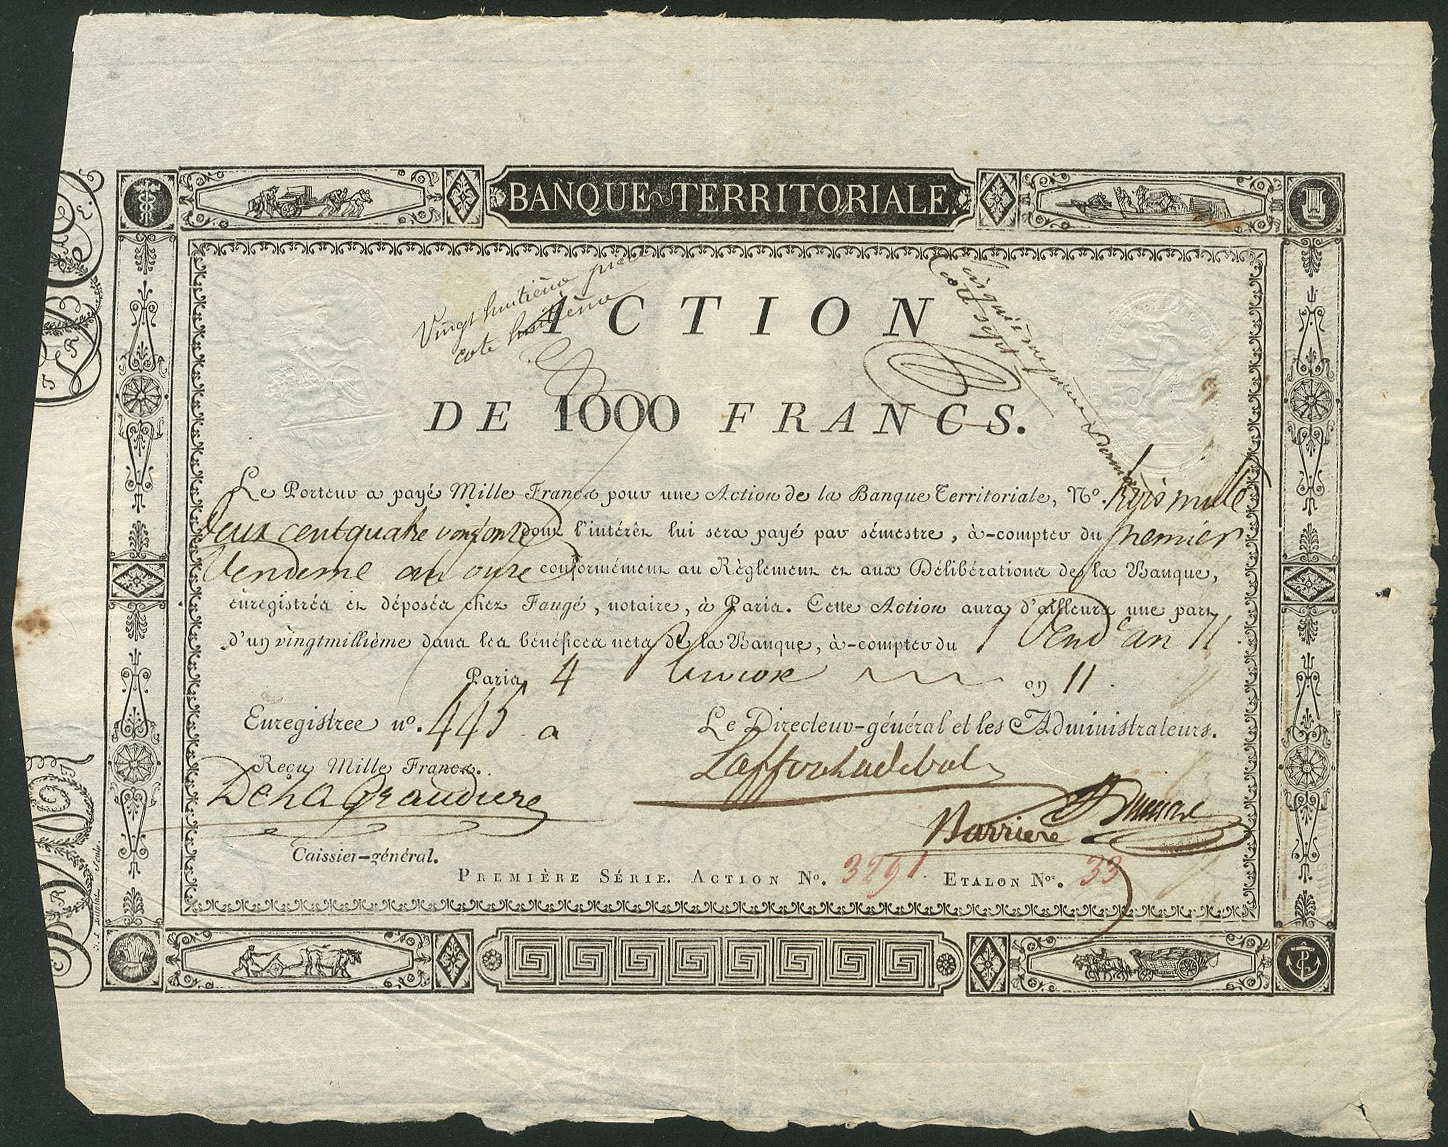 BANQUE TERRITORIALE.
Vingt huitième pièce
cote huitième
ACTION
DE 1000 FRANCS.
Le Porteur a payé Mille Francs pour une Action de la Banque Territoriale, N°. trois mille
deux cent quatre vingt onze pour l'intérêt lui sera payé par sémestre, à-compter du premier
Vendeme an onze conformément au Règlement et aux Délibérations de la Banque,
enregistrés et déposés chez Faugé, notaire, à Paris. Cette Action aura d'ailleurs une part
d'un vingtmillième dans les bénéfices nets de la Banque, à-compter du 1 Vend.e an 11
Paris, 4 an 11.
Enregistree n°. 445 a
Le Directeur-général et les Administrateurs.
Reçu Mille Francs.
De la Graudiere
Barriere
Caissier-général.
PREMIÈRE SÉRIE. ACTION N°. 3291. ETALON Nos. 33